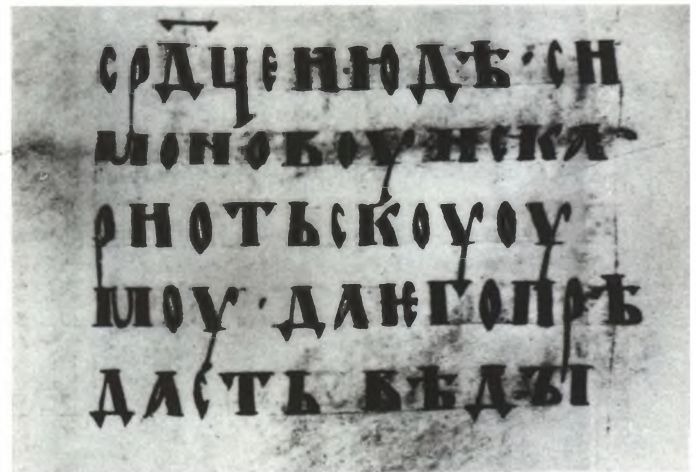 срд҃цеиюдѣ·си
моновоуиска
риотьскоуоу
моу·даѥгопрѣ
дасть вѣдꙑ